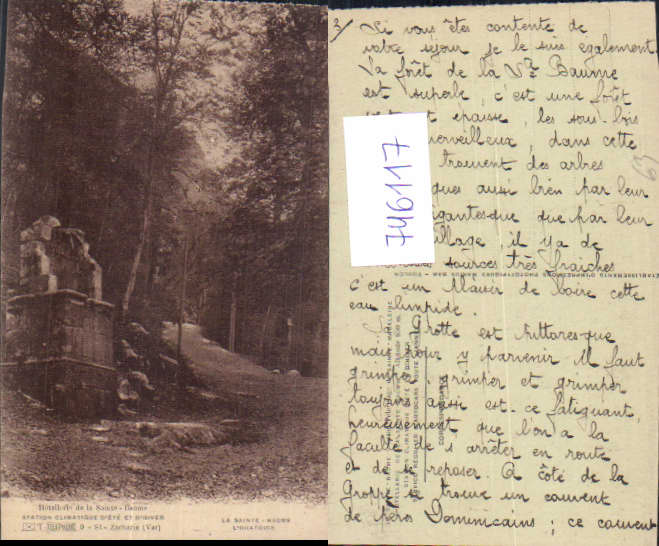 Hôtellerie de la Sainte-Baume
STATION CLIMATIQUE D'ÉTÉ ET D'HIVER
St-Zacharie (Var)
LA SAINTE-BAUME
L'ORATOIRE
3/ Si vous êtes contente de
votre séjour je le suis également.
La forêt de la Ste Baume
est superbe, c'est une forêt
épaisse, les sous-bois
merveilleux, dans cette
trouvent des arbres
ques aussi bien par leur
gigantesque que par leur
il y a de
sources très fraiches
c'est un plaisir de boire cette
eau limpide.
Grotte est pittoresque
mais pour y parvenir il faut
grimper, grimper et grimper
toujours aussi est-ce fatiguant,
heureusement que l'on a la
faculté de s'arrêter en route
et de se reposer. A côté de la
Grotte se trouve un couvent
de pères Dominicains; ce couvent
746117
63
CORRESPONDANCE